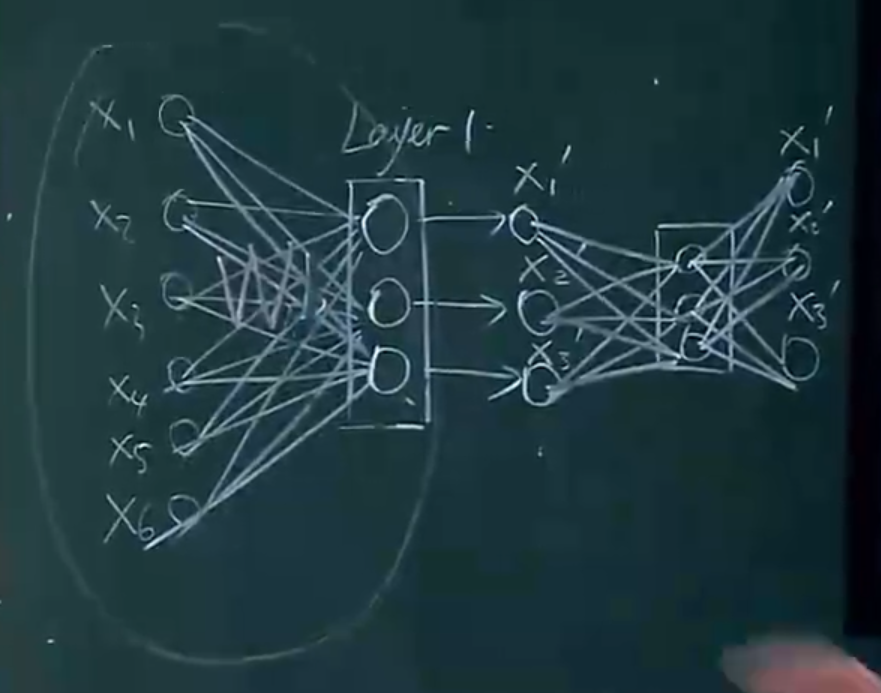 x₁
x₂
x₃
x₄
x₅
x₆
Layer 1.
x₁'
x₂'
x₃'
x₁'
x₂'
x₃'
W